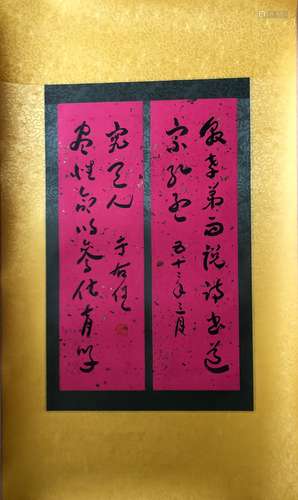 敦孝弟而說詩書道
宗孔孟 五十三年三月
盡性命以參化育學
究天人 于右任